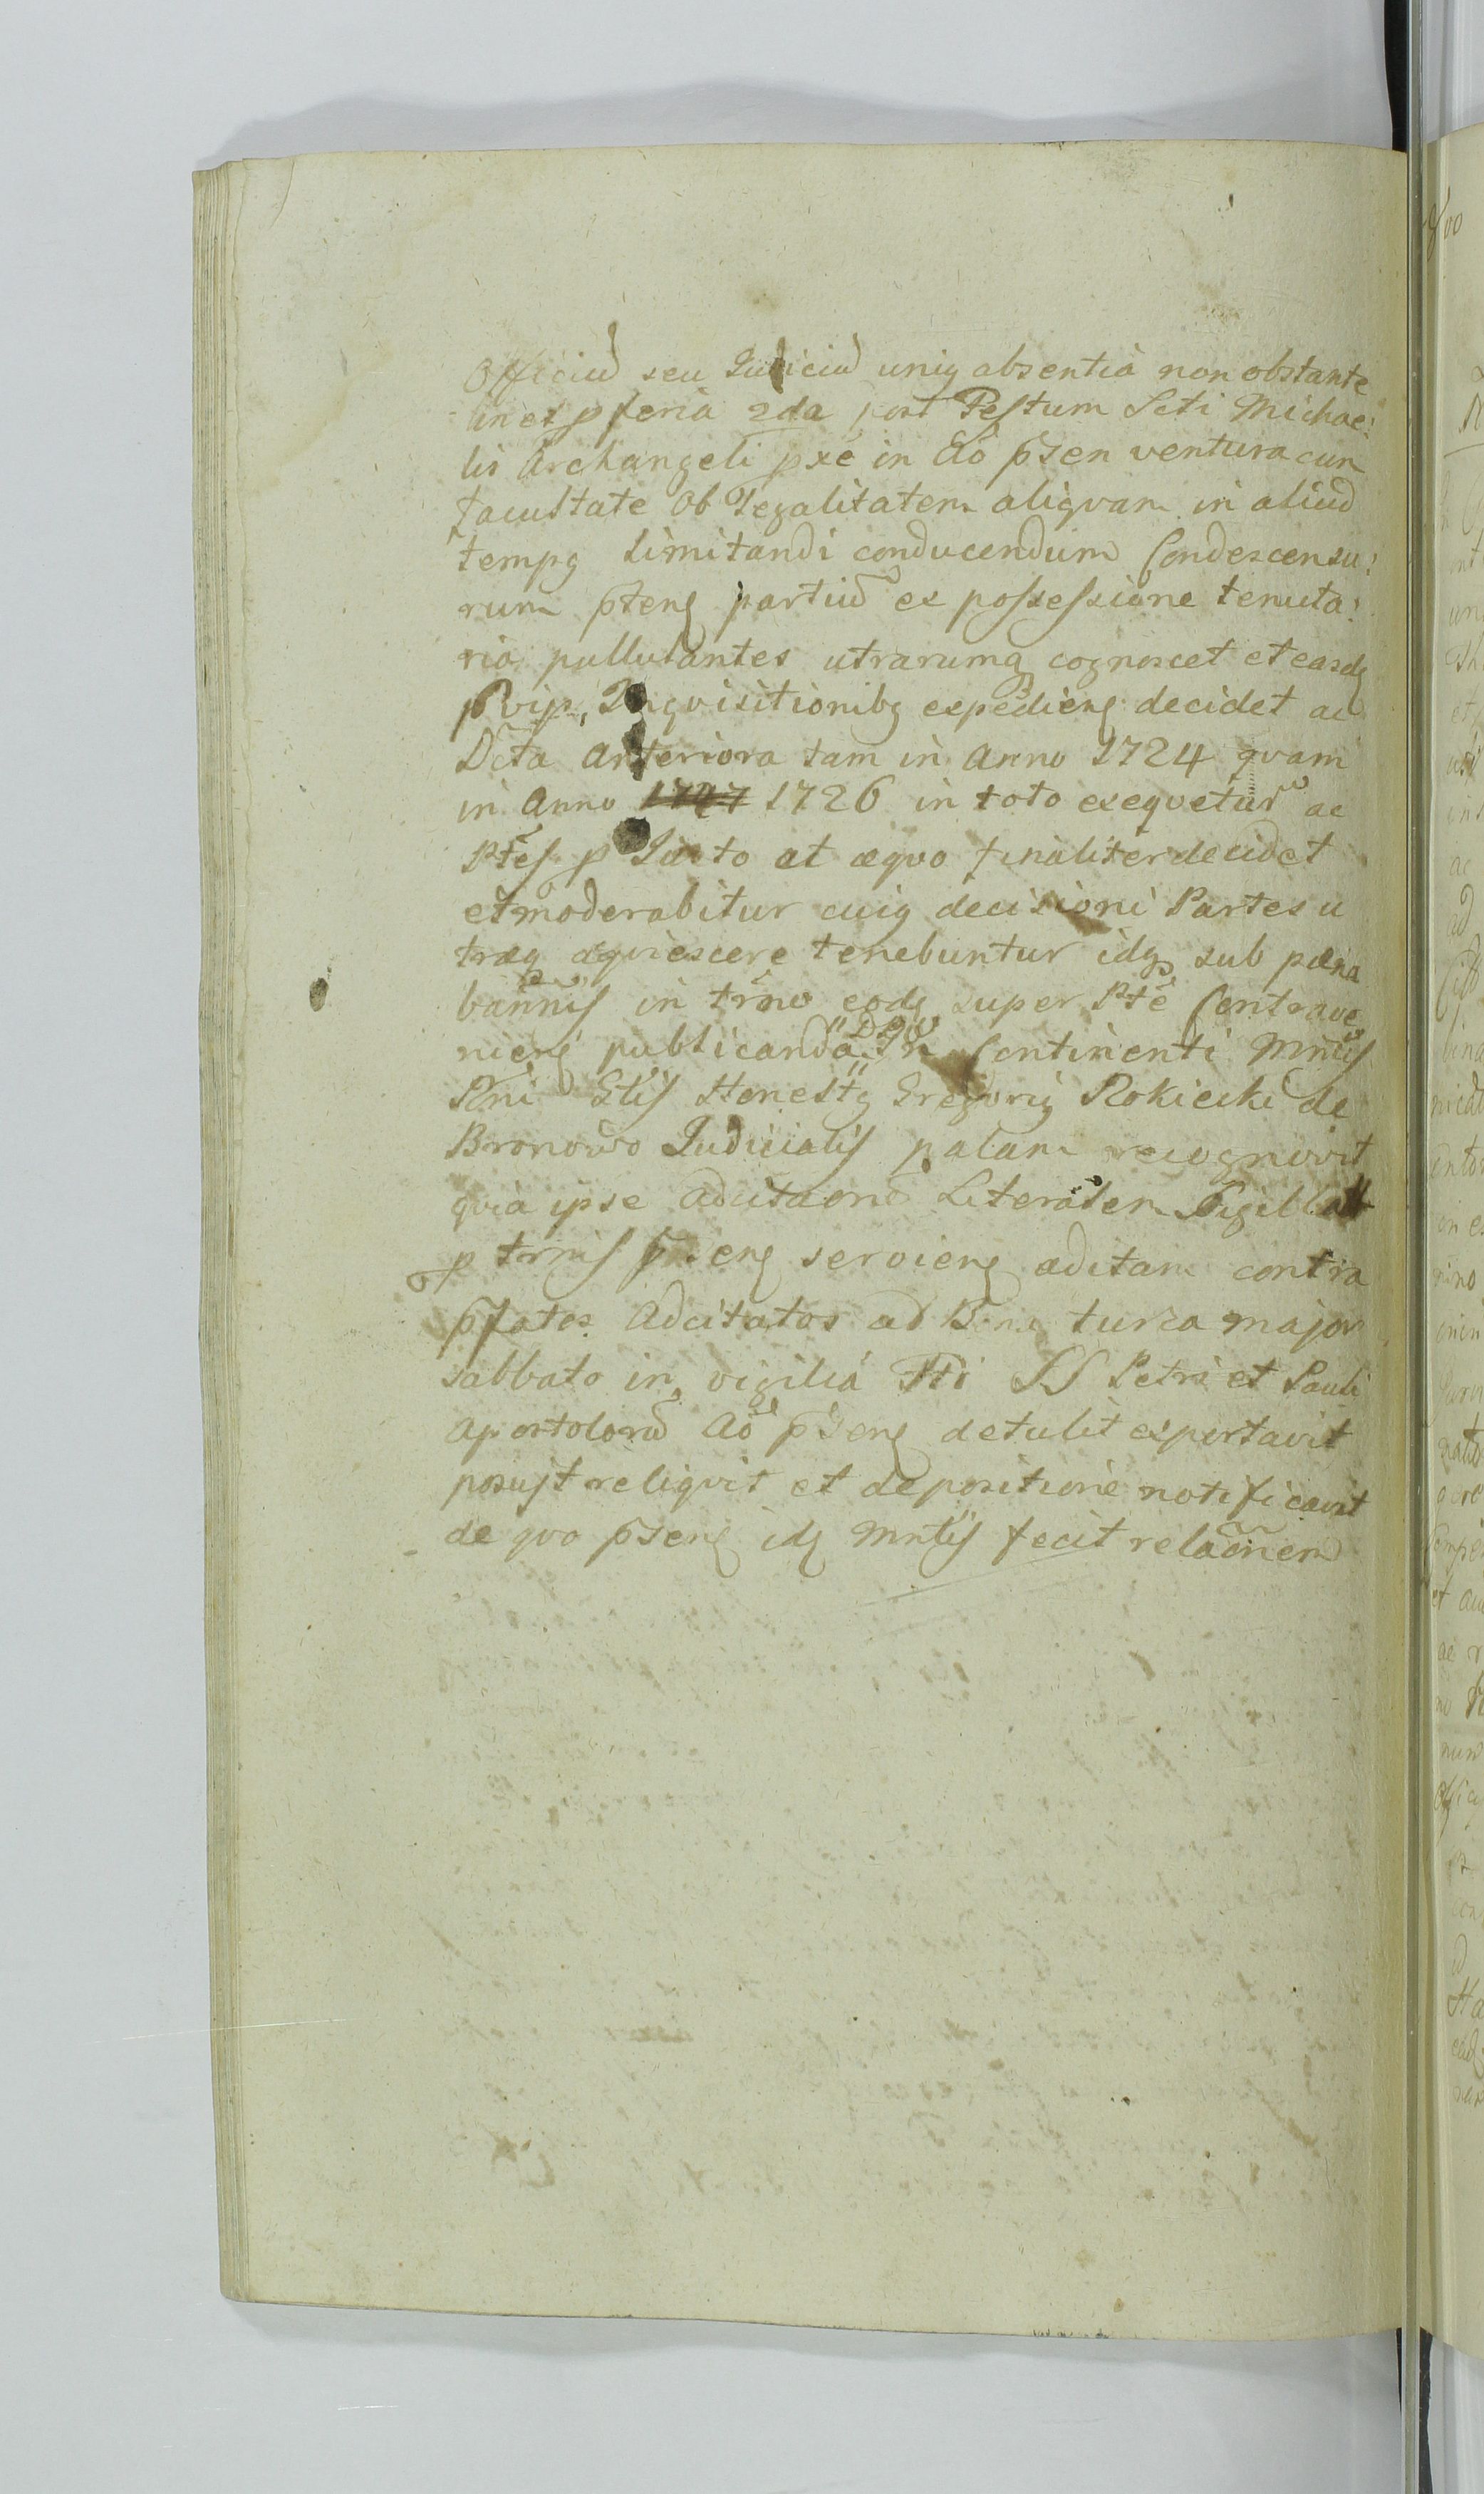 Officiū seu Iudiciū uniq absentia non obstante
in et p feria 2da post Festum Scti Michae:
lis Archangeli pxe in Ao psen ventura cum
facultate Ob legalitatem aliqvam in aliud
tempq limitandi conducendum Condescensu:
rum ptenq partiū ex possessione tenuta:
ria pullulantes utrarumq cognoscet et easdq
Inqvisitionibq expedienq decidet ac
Dcta anteriora tam in Anno 1724 qvam
in Anno 1727 1726 in toto exeqvetur ac
Ptes p Iusto et æqvo finaliter decidet
et moderabitur cuiq decisioni Partes u
traq aqviescere tenebuntur idq sub pæna
bannis in trno eodq super Pte Contrave
nienq publicanda In Continenti Mntis
Rni Gtis Honestq Gregoriq Rokicki de
Bronowo Iudicialis palam recognovit
qvia ipse adcitaonē Literalem Sigillatt
p trnis psenq servienq æditam contra
pfatos Adcitatos ad Bona turza major
sabbato in vigilia Fti SS Petri et Pauli
Apostolorū Ao psenq detulit exportavit
posuit reliqvit et depositione notificavit
de qvo psenq idq Mntis fecit relaonem